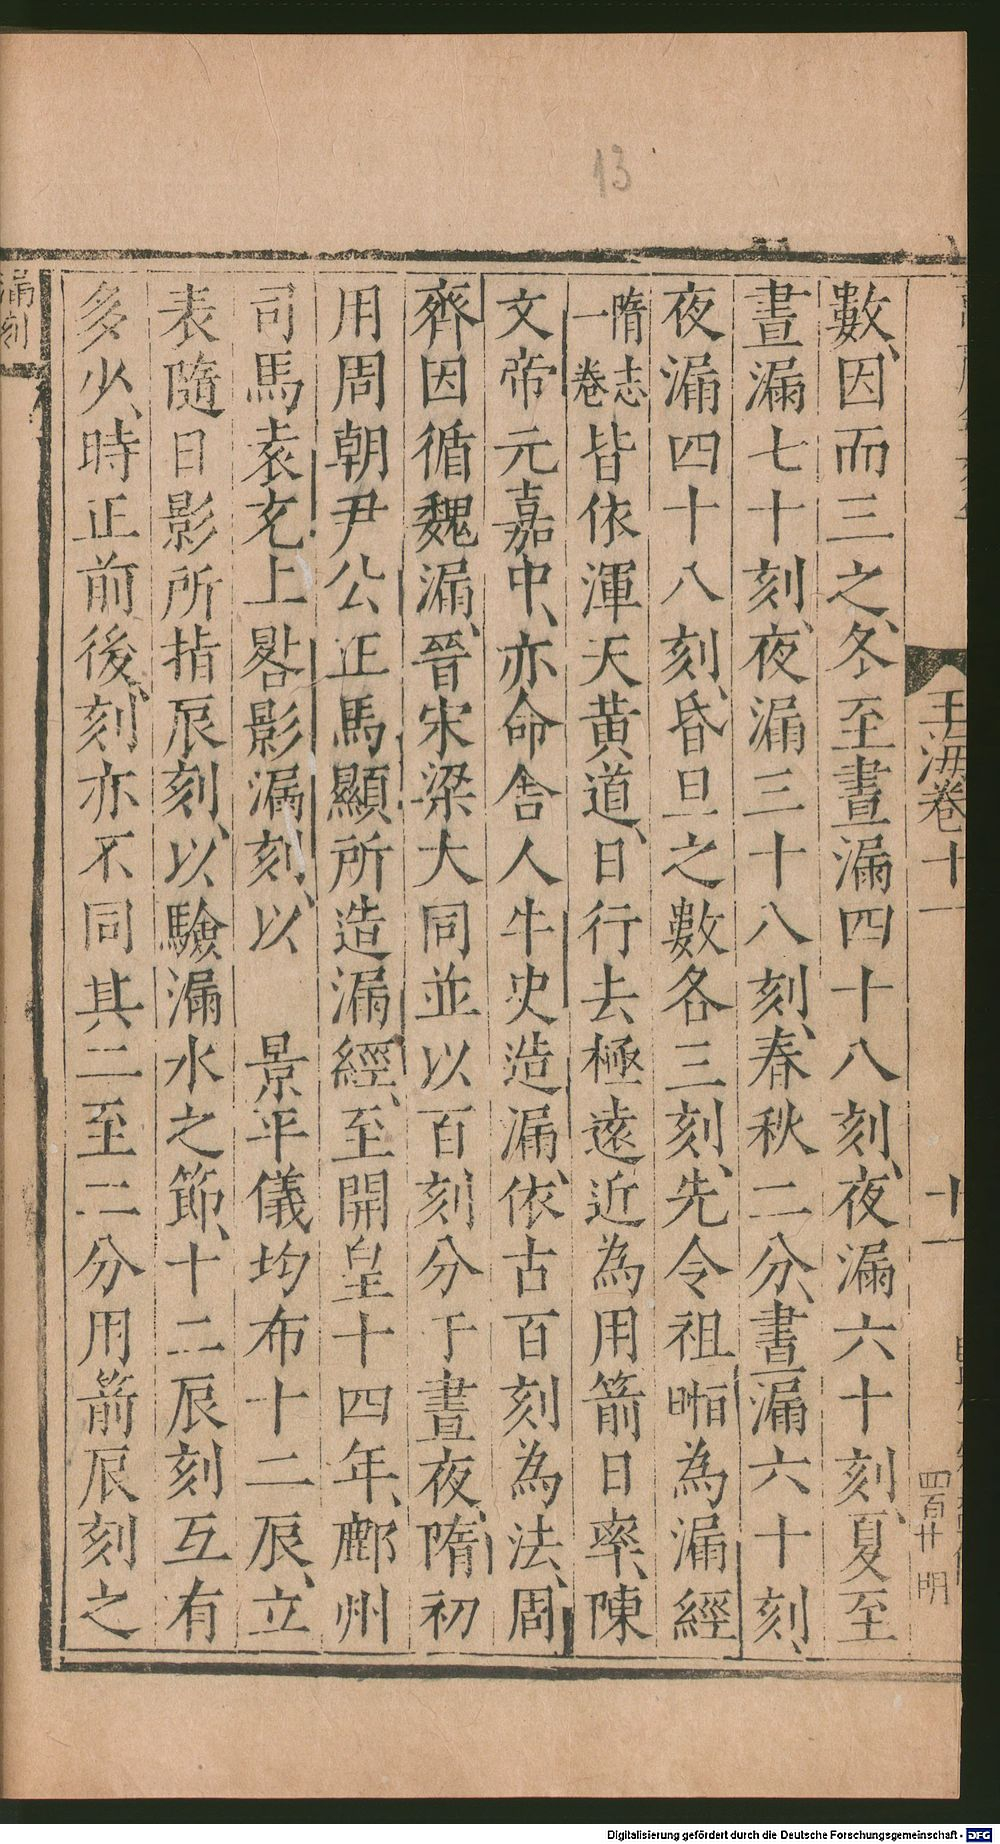 13
玉海卷十一
十一
四百廿
明
數、因而三之、冬至晝漏四十八刻、夜漏六十刻、夏至
晝漏七十刻、夜漏三十八刻、春秋二分、晝漏六十刻、
夜漏四十八刻、昏旦之數各三刻、先令祖暅為漏經
隋志一卷皆依渾天黃道、日行去極遠近為用箭日率、陳
文帝元嘉中、亦命舍人朱史造漏、依古百刻為法、周
齊因循魏漏、晉宋梁大同並以百刻分于晝夜、隋初
用周朝尹公正馬顯所造漏經、至開皇十四年、鄜州
司馬袁充上晷影漏刻、以　景平儀均布十二辰、立
表隨日影所指辰刻、以驗漏水之節、十二辰刻互有
多少、時正前後、刻亦不同其二至二分用箭辰刻之
漏刻
Digitalisierung gefördert durch die Deutsche Forschungsgemeinschaft - DFG